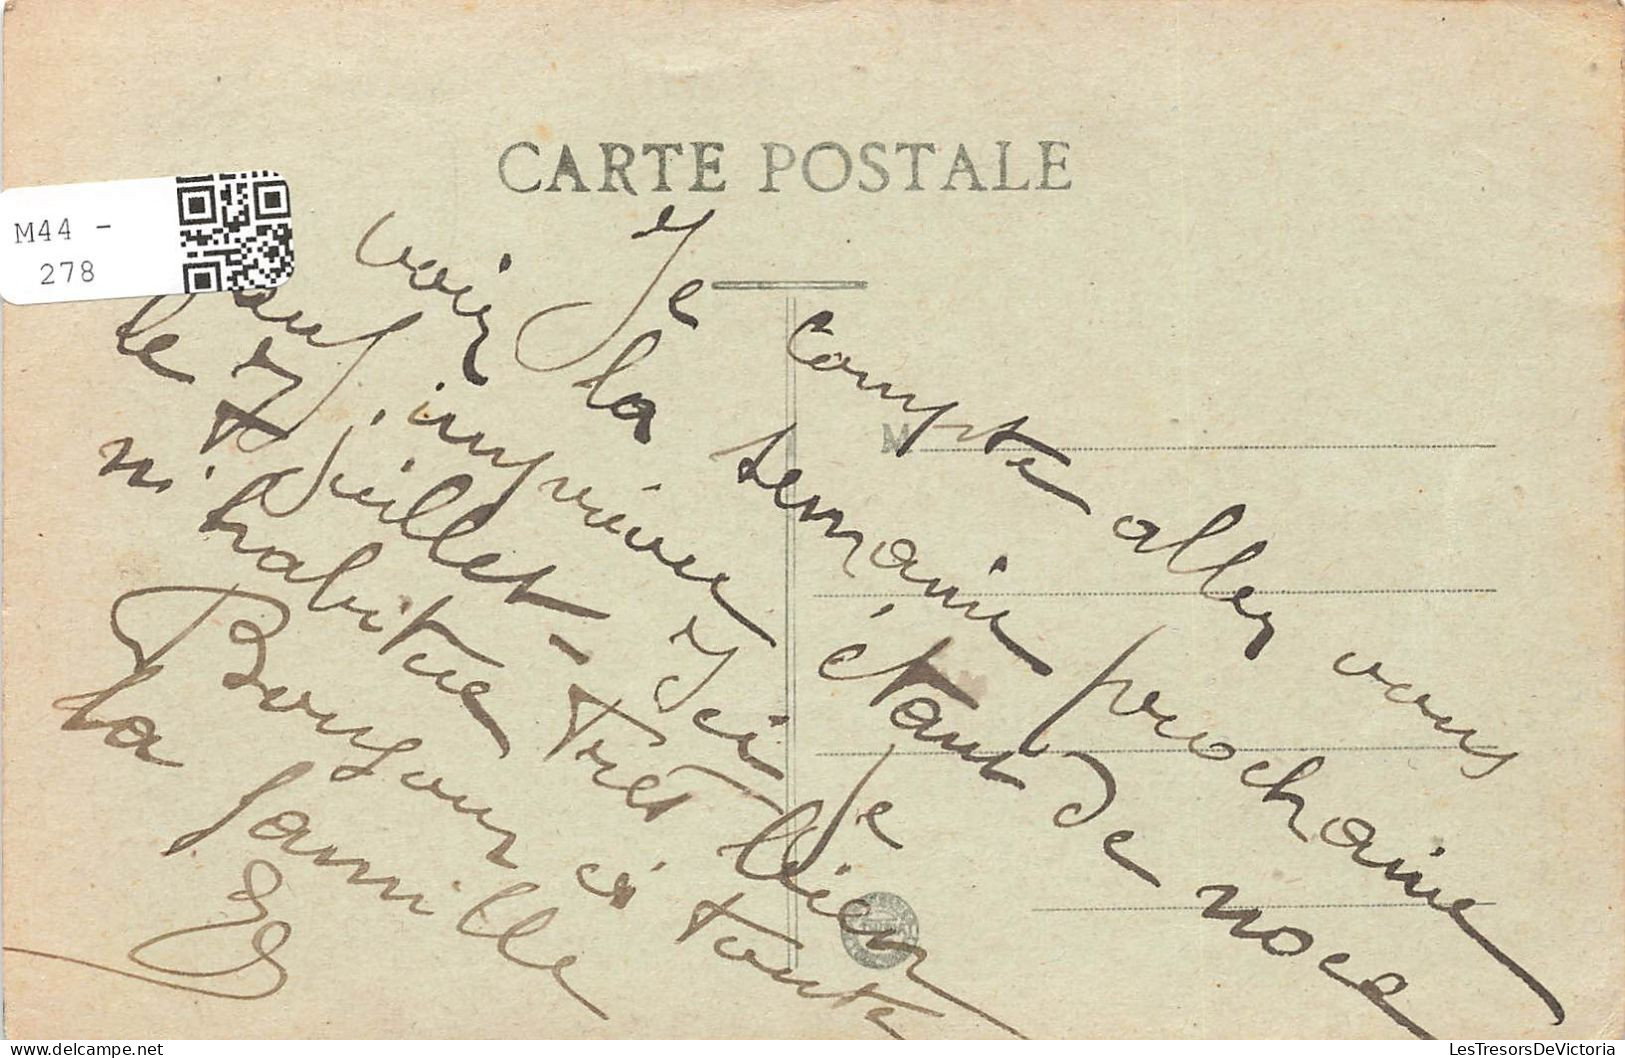 CARTE POSTALE
M44 -
278
Je compte aller vous
voir la semaine prochaine
sauf imprévu étant de noce
le 7 Juillet - Ici je
m'habitue très bien
Bonjour à toute
la famille
M
LesTresorsDeVictoria